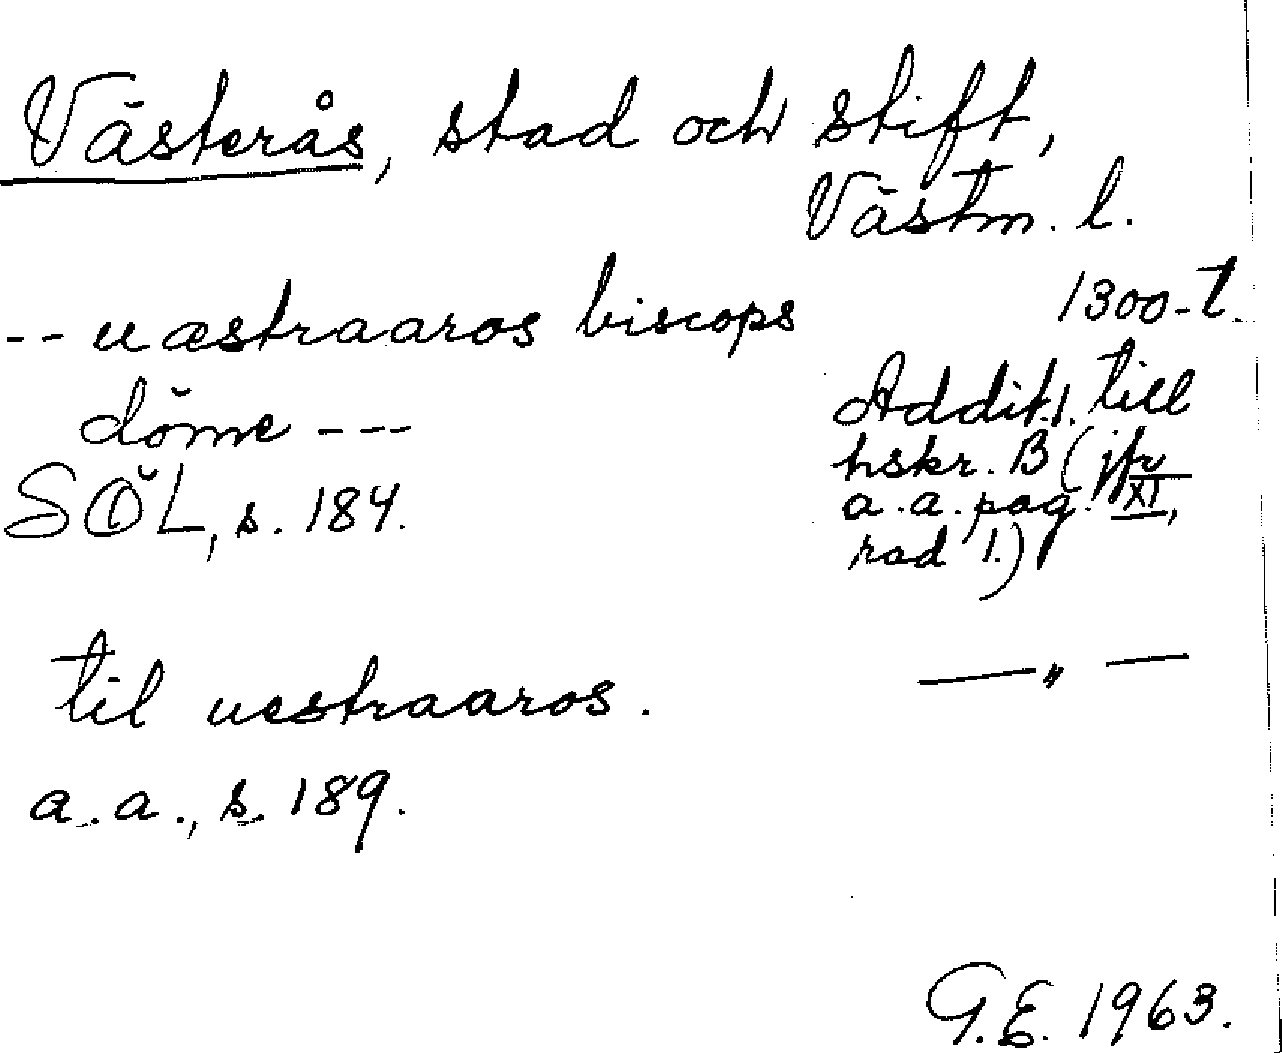 Västerås, stad och stift,
Västm. l.
-- uæstraaros biscops
döme ---
SÖL, s. 184.
1300-t.
Addit. 1. till
hskr. B (jfr
a.a. pag. XI,
rad 1.)
til uestraaros.
— „ —
a.a., s. 189.
G.E. 1963.